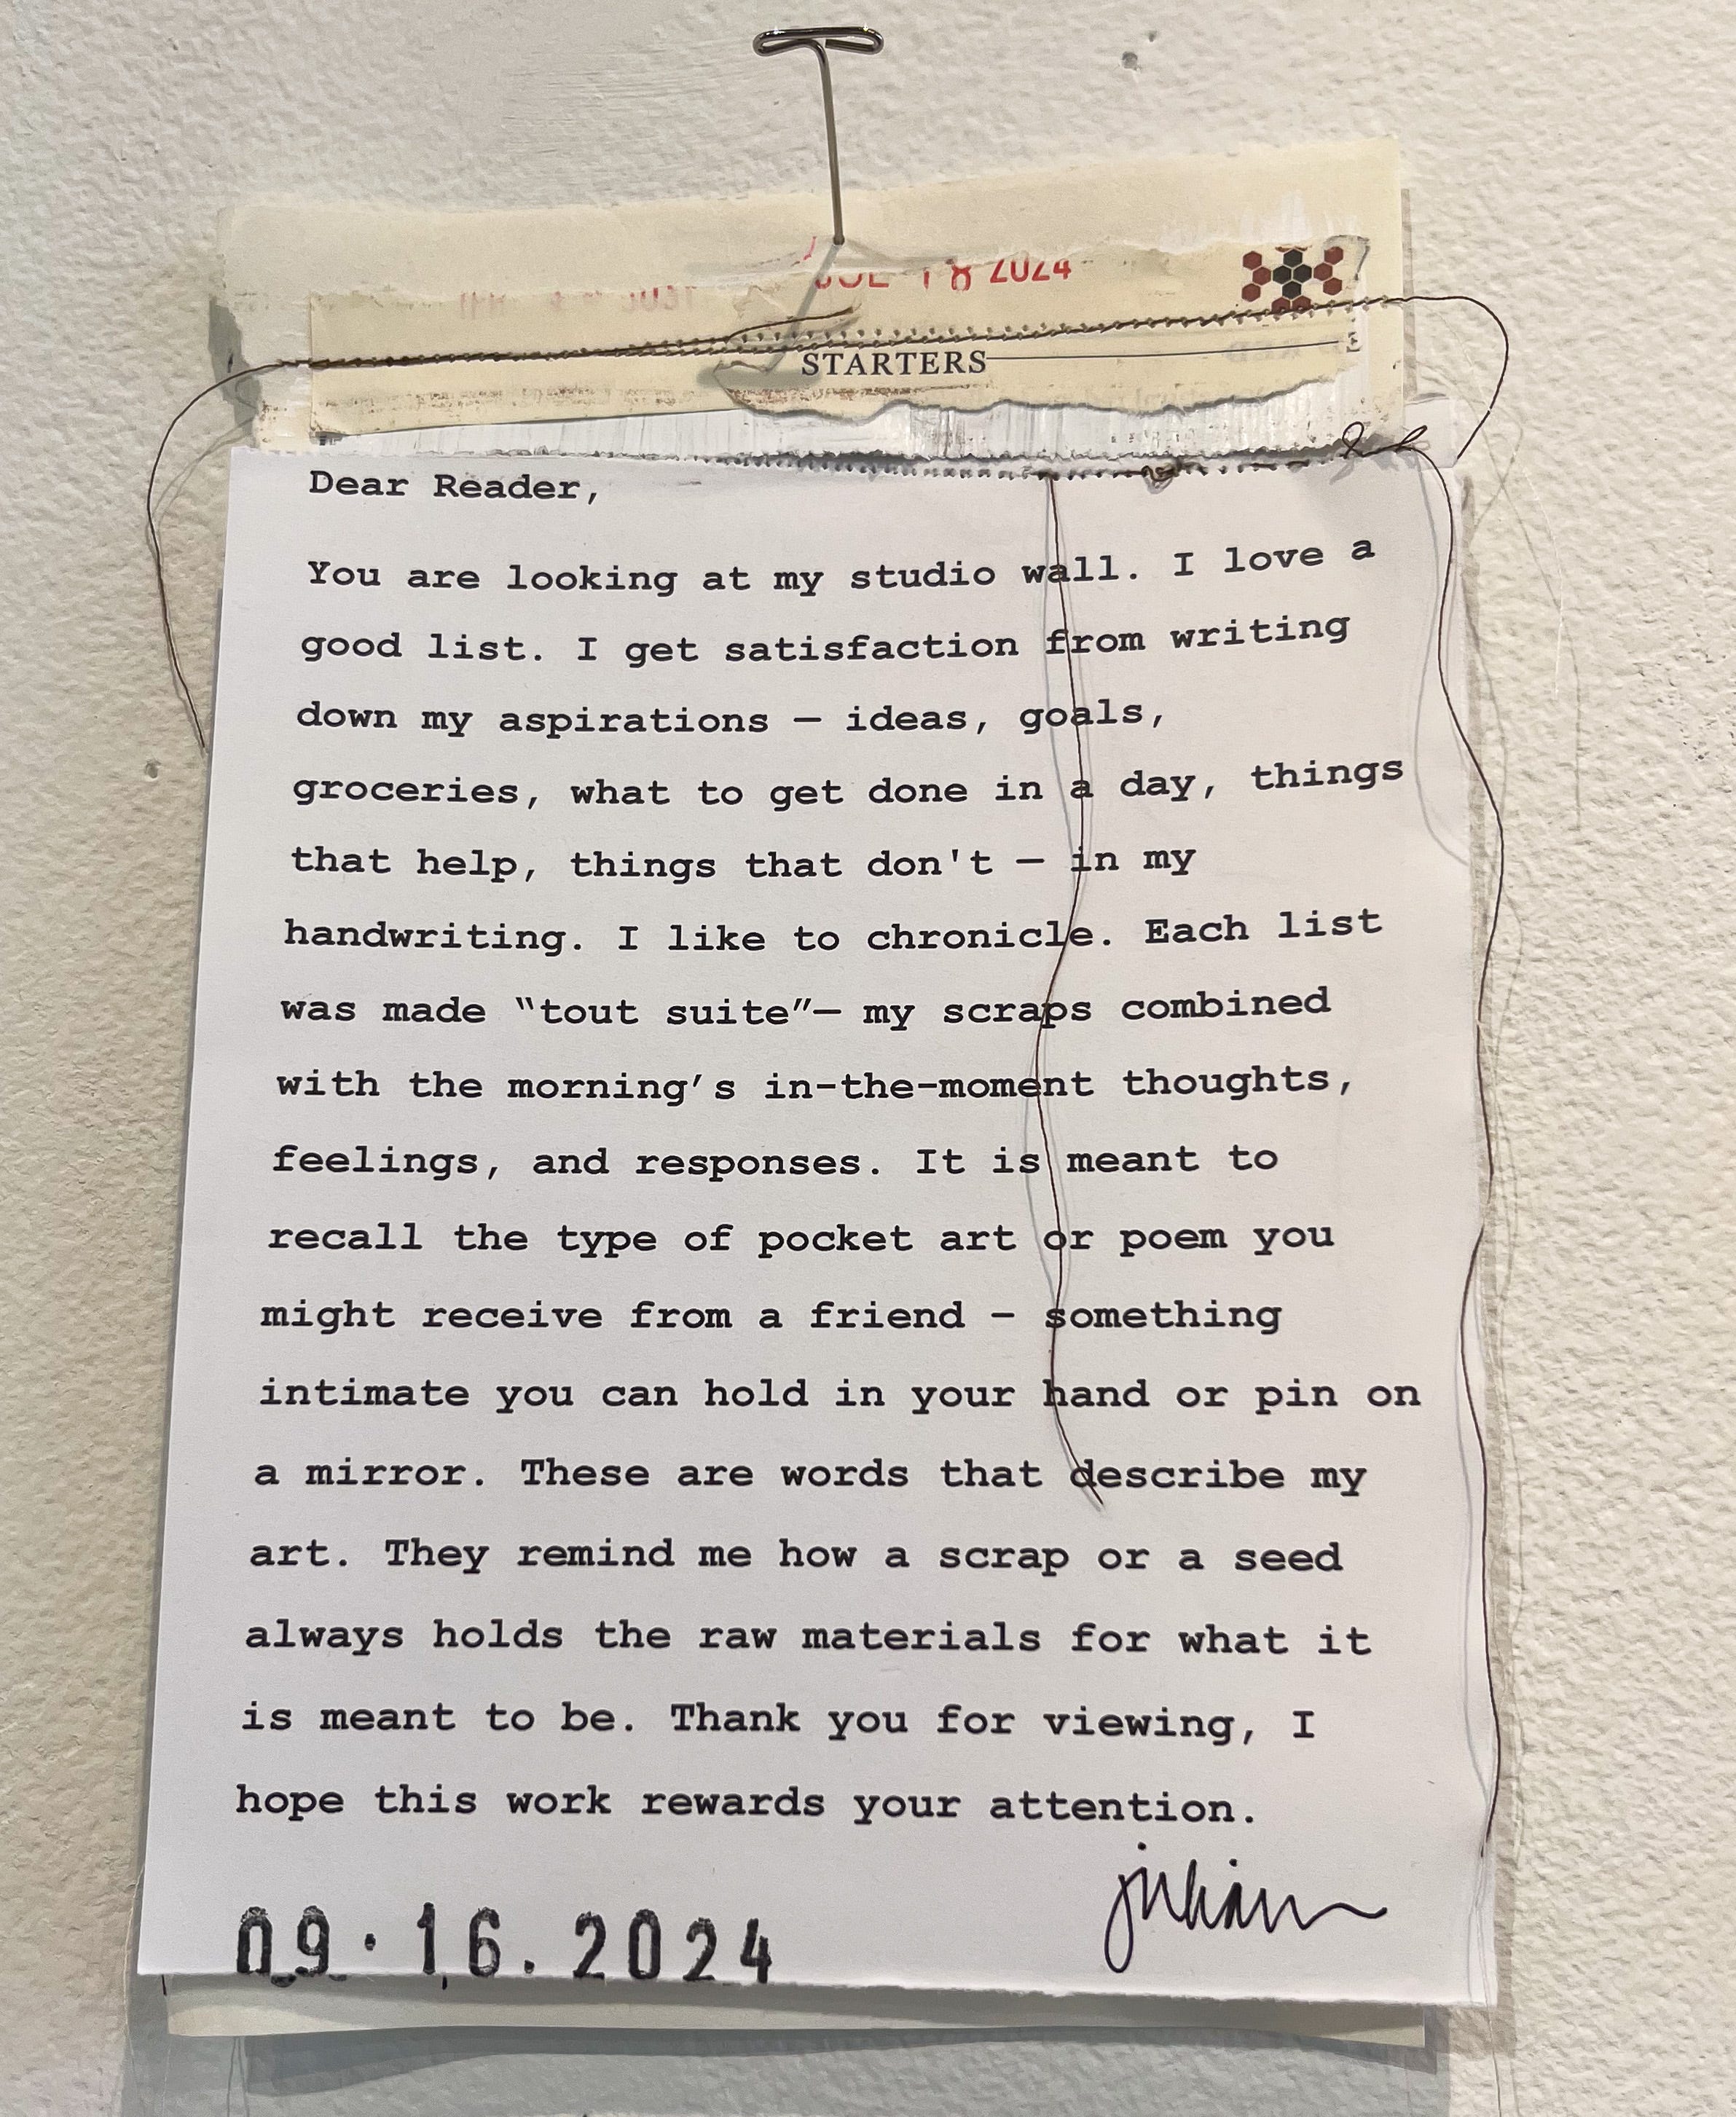 JUL 18 2024
STARTERS
Dear Reader,
You are looking at my studio wall. I love a
good list. I get satisfaction from writing
down my aspirations — ideas, goals,
groceries, what to get done in a day, things
that help, things that don't — in my
handwriting. I like to chronicle. Each list
was made “tout suite”— my scraps combined
with the morning’s in-the-moment thoughts,
feelings, and responses. It is meant to
recall the type of pocket art or poem you
might receive from a friend – something
intimate you can hold in your hand or pin on
a mirror. These are words that describe my
art. They remind me how a scrap or a seed
always holds the raw materials for what it
is meant to be. Thank you for viewing, I
hope this work rewards your attention.
09.16.2024